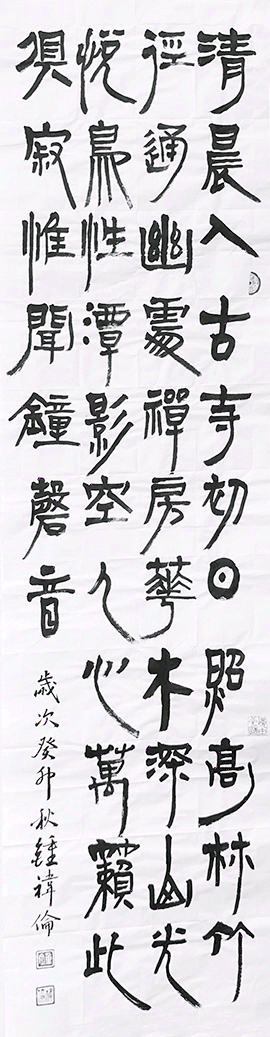 清晨入古寺初日照高林竹
徑通幽處禪房華木深山光
悅鳥性潭影空人心萬籟此
俱寂惟聞鐘磬音
歲次癸卯秋鍾禕倫